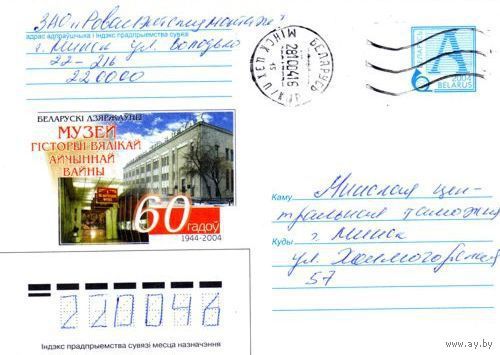 ЗАО
адрас адпраўшчыка і індэкс прадпрыемства сувязі
г. Минск ул. Володько
22-216
220000
БЕЛАРУСЬ
МІНСК
281004 16
А
2004
BELARUS
БЕЛАРУСКІ ДЗЯРЖАЎНЫ
МУЗЕЙ
ГІСТОРЫІ ВЯЛІКАЙ
АЙЧЫННАЙ
ВАЙНЫ
60
ГАДОЎ
1944-2004
Каму Минская цен-
тральная таможня
Куды г. Минск
ул. Холмогорская
57
220046
Індэкс прадпрыемства сувязі месца назначэння
www.ay.by